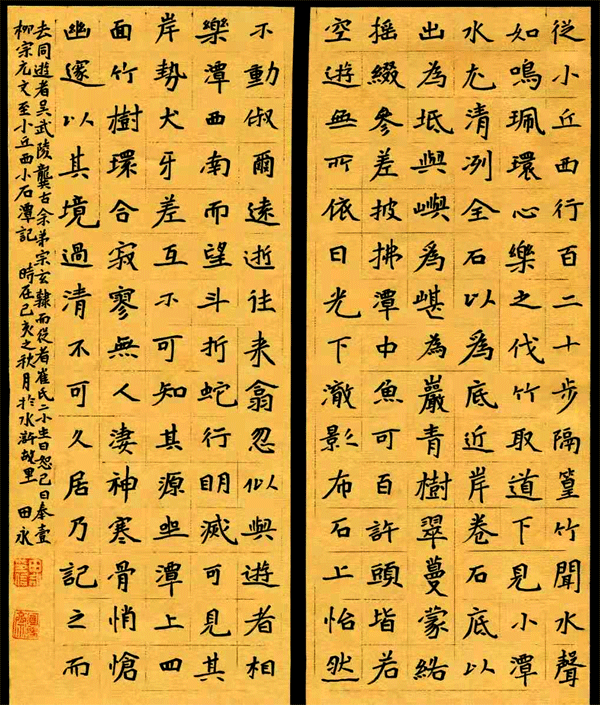 從小丘西行百二十步隔篁竹聞水聲
如鳴珮環心樂之伐竹取道下見小潭
水尤清冽全石以為底近岸卷石底以
出為坻與嶼為嵁為巖青樹翠蔓蒙絡
搖綴參差披拂潭中魚可百許頭皆若
空遊無所依日光下澈影布石上怡然
不動俶爾遠逝往來翕忽似與遊者相
樂潭西南而望斗折蛇行明滅可見其
岸勢犬牙差互不可知其源坐潭上四
面竹樹環合寂寥無人淒神寒骨悄愴
幽邃以其境過清不可久居乃記之而
去同遊者吳武陵龔古余弟宗玄隸而從者崔氏二小生曰恕己曰奉壹
柳宗元文至小丘西小石潭記 時在己亥之秋月於水滸故里 田永